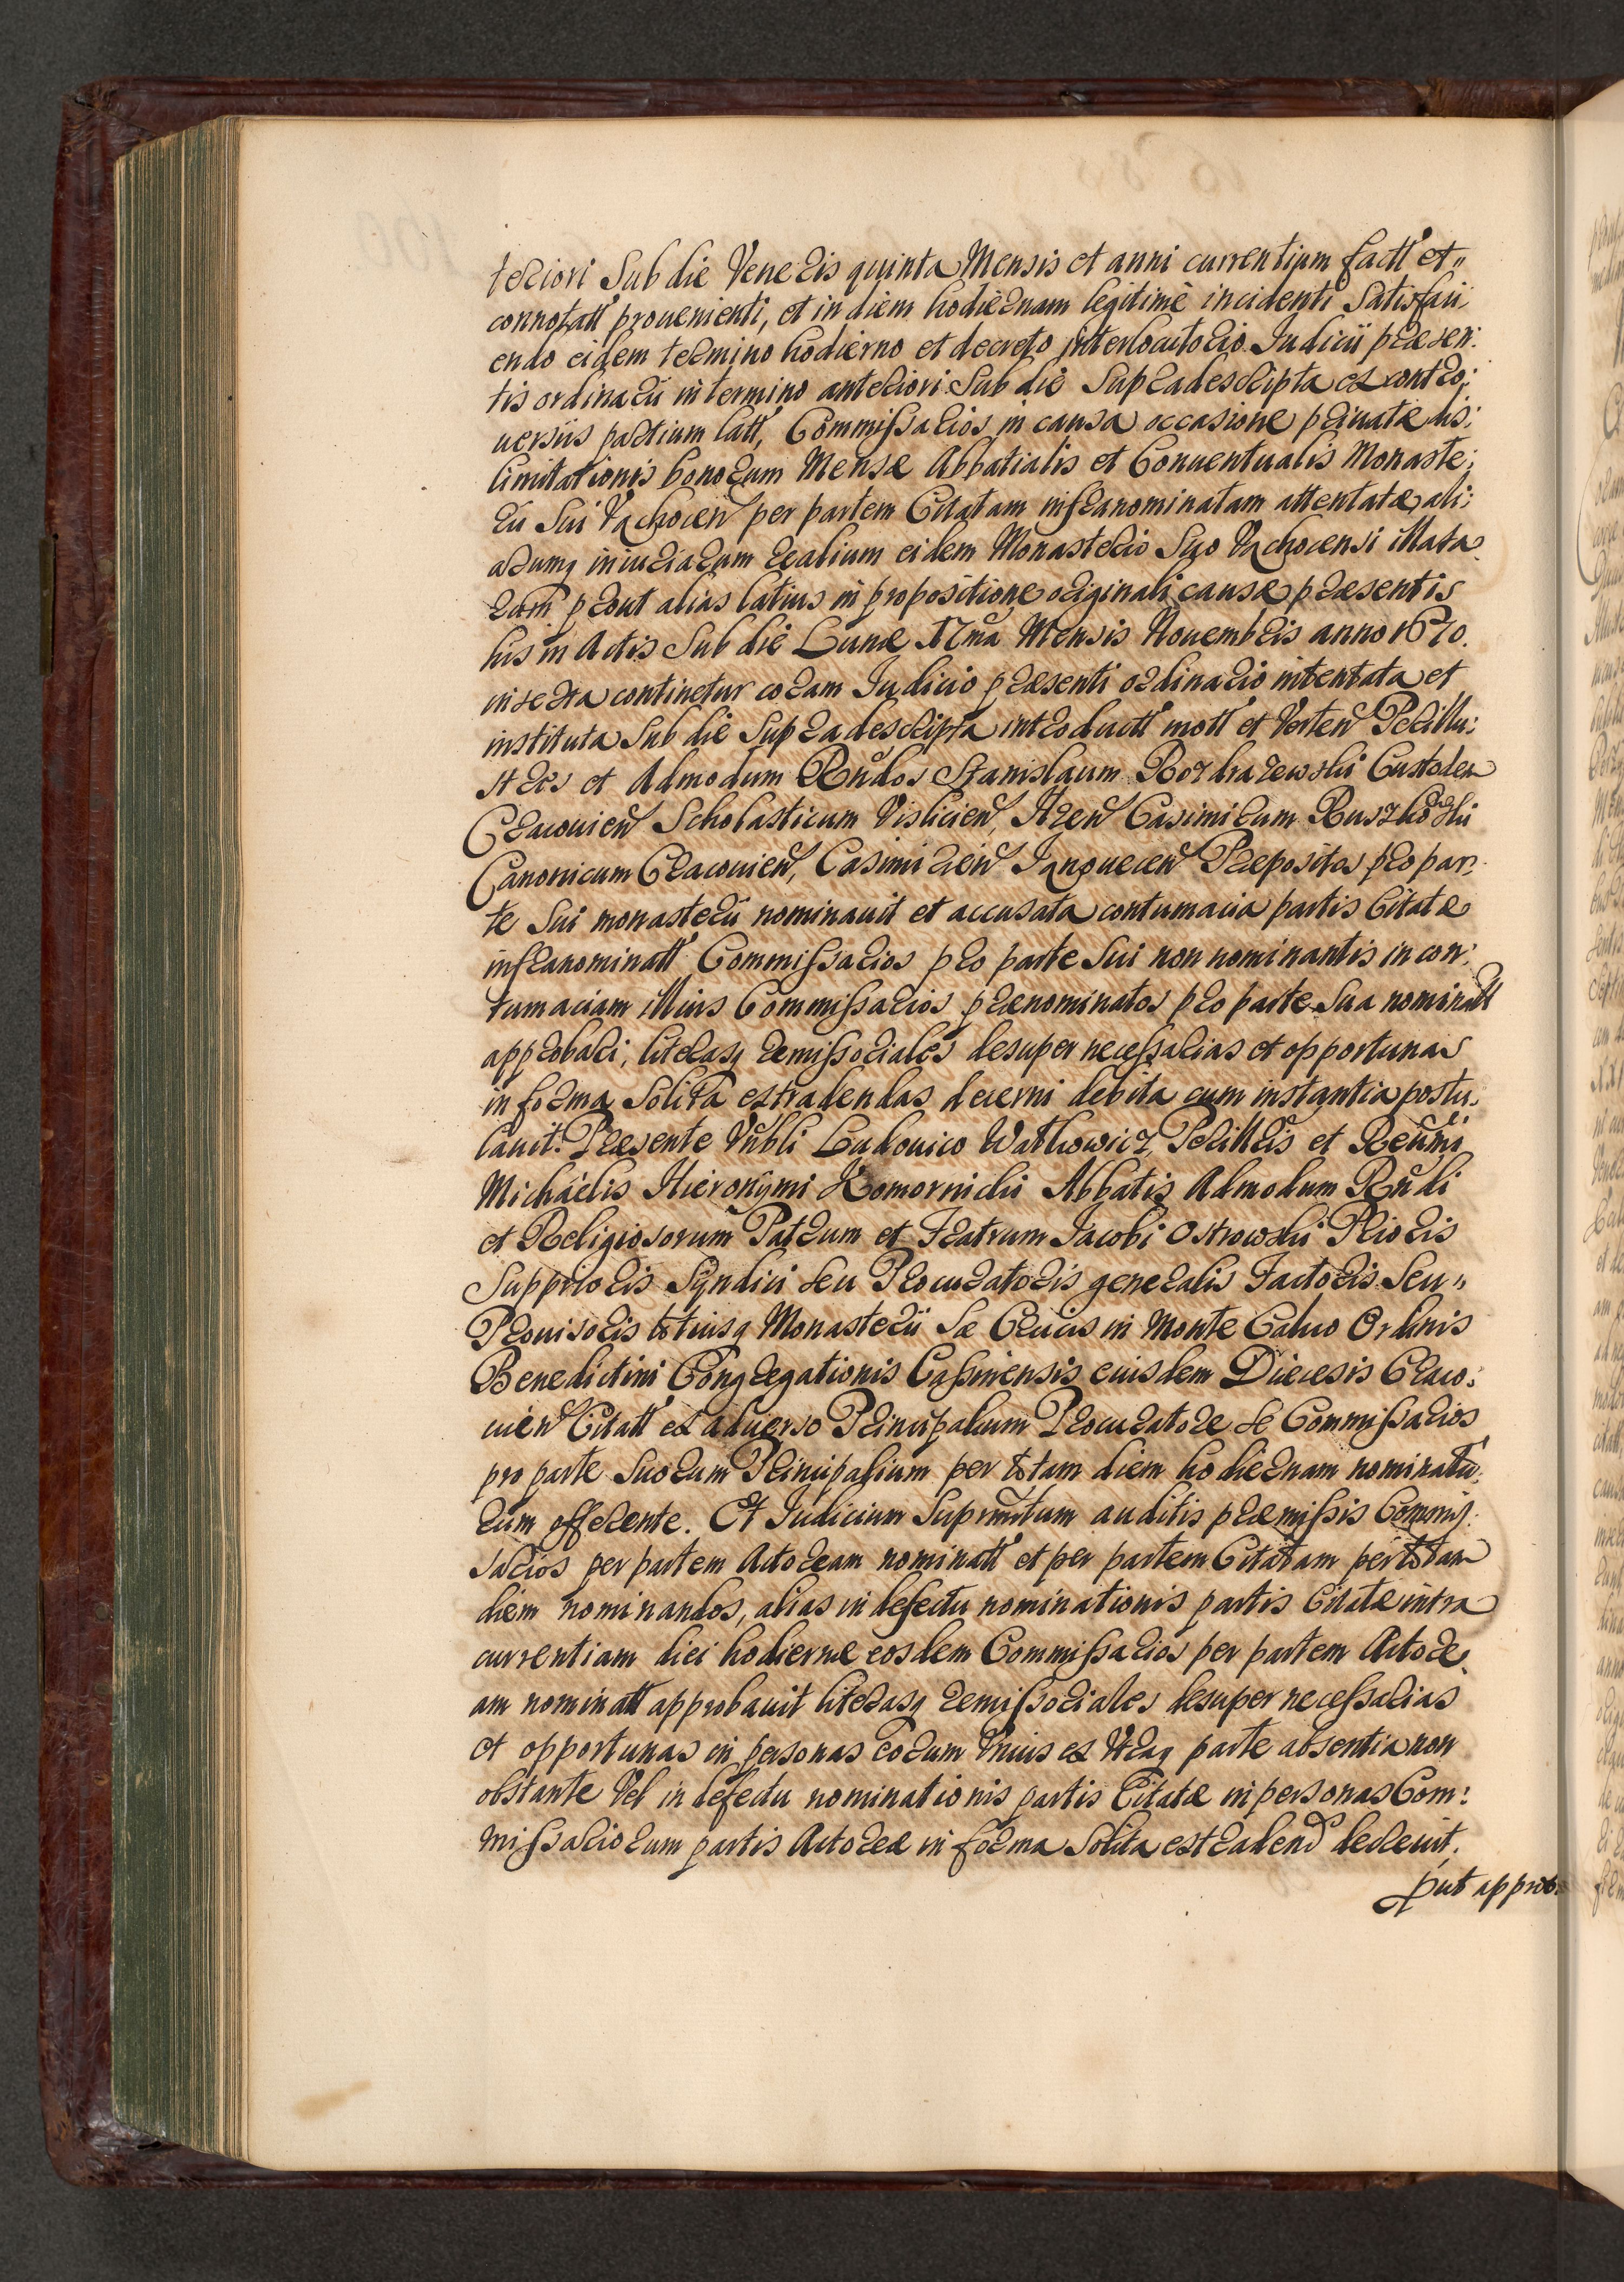 teriori Sub die Veneris quinta Mensis et anni currentium fact̃t et„
connotatt prouenienti, et in diem hodiernam legitimè incidenti Satisfaci„
endo eidem termino hodierno et decreto interlocutorio Iudicii præsen:
tis ordinarii in termino anteriori Sub die Supradescripta ex contro:
uersiis partium latt, Commissarios in causa occasione priuatæ dis:
limitationis bonorum Mensæ Abbatialis et Conuentualis Monaste:
rii Sui Vąchocen̄ per partem Citatam infranominatam attentatæ, ali:
arumq iniuriarum realium eidem Monasterio Suo Vąchocensi illata
rum prout alias latius in propositione originali causæ præsentis
his in Actis Sub die Lunæ 17ma Mensis Nouembris anno 1670.
inserta continetur coram Iudicio præsenti ordinario intentata et
instituta Sub die Supradescripta introductt mott et Verten̄ Perillu:
stres et Admodum Rndos Stanislaum Rozdrazewski Custodem
Cracouien̄ Scholasticum Vislicien̄, Casimirum Ruszkowski
Canonicum Cracouien̄, Casimirien̄ Præpositos pro par:
te Sui monasterii nominauit et accusata contumacia partis Citatæ
infranominatt Commissarios pro parte Sui non nominantis in con:
tumaciam illius Commissarios prænominatos pro parte Sua nominatt
approbari, literasq remissoriales desuper necessarias et opportunas
in forma Solita extradendas decerni debita cum instantia postu:
lauit. Præsente Nobli Ludouico Watkowicz, Perillris et Rẽumi
Michaelis Hieronymi Komornicki Abbatis Admodum Rñdi
et Religiosorum Patrum et Fratrum Jacobi Ostrowski Prioris
Supprioris Syndici seu Procuratoris generalis Factoris Seu„
Prouisoris totiusq Monasterii Sæ Crucis in Monte Caluo Ordinis
Benedictini Congregationis Cassinensis eiusdem Diæcesis Craco:
uien̄ Citatt ex aduerso Principalium Procuratore se Commissarios
pro parte Suorum Principalium per totam diem hodiernam nominatu:
rum offerente. Et Iudicium Suprascriptum auditis præmissis Commis:
sarios per partem Actoream nominatt et per partem Citatam per totam
diem nominandos, alias in defectu nominationis partis Citatæ intra
currentiam diei hodiernæ eosdem Commissarios per partem Actore
am nominatt approbauit literasq remissoriales desuper necessarias
et opportunas in personas eorum Vnius ex Vtraq parte absentia non
obstante Vel in defectu nominationis partis Citatæ in personas Com:
missariorum partis Actoreæ in forma Solita extradend̄ decreuit.
put approb: